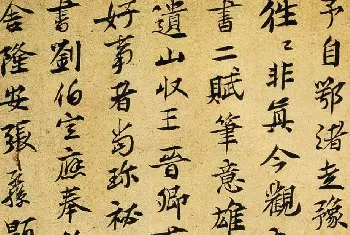 予自鄂渚走豫
往〻非真今觀
書二賦筆意雄
遺山收王晉卿
好事者當珍祕
書劉伯宣應奉
舍隆安張